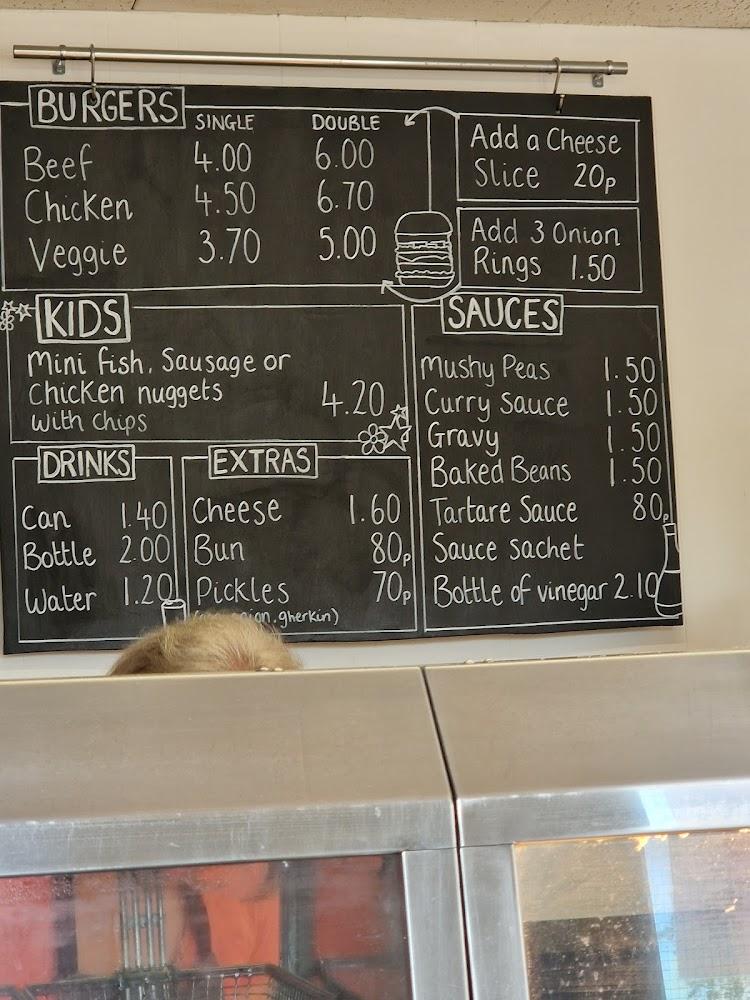 BURGERS
SINGLE DOUBLE
Beef 4.00 6.00
Chicken 4.50 6.70
Veggie 3.70 5.00
Add a Cheese
Slice 20p
Add 3 Onion
Rings 1.50
KIDS
Mini fish, Sausage or
Chicken nuggets 4.20
with chips
SAUCES
Mushy Peas 1.50
Curry Sauce 1.50
Gravy 1.50
Baked Beans 1.50
Tartare Sauce 80p
Sauce sachet
Bottle of vinegar 2.10
DRINKS
Can 1.40
Bottle 2.00
Water 1.20
EXTRAS
Cheese 1.60
Bun 80p
Pickles 70p
gherkin)